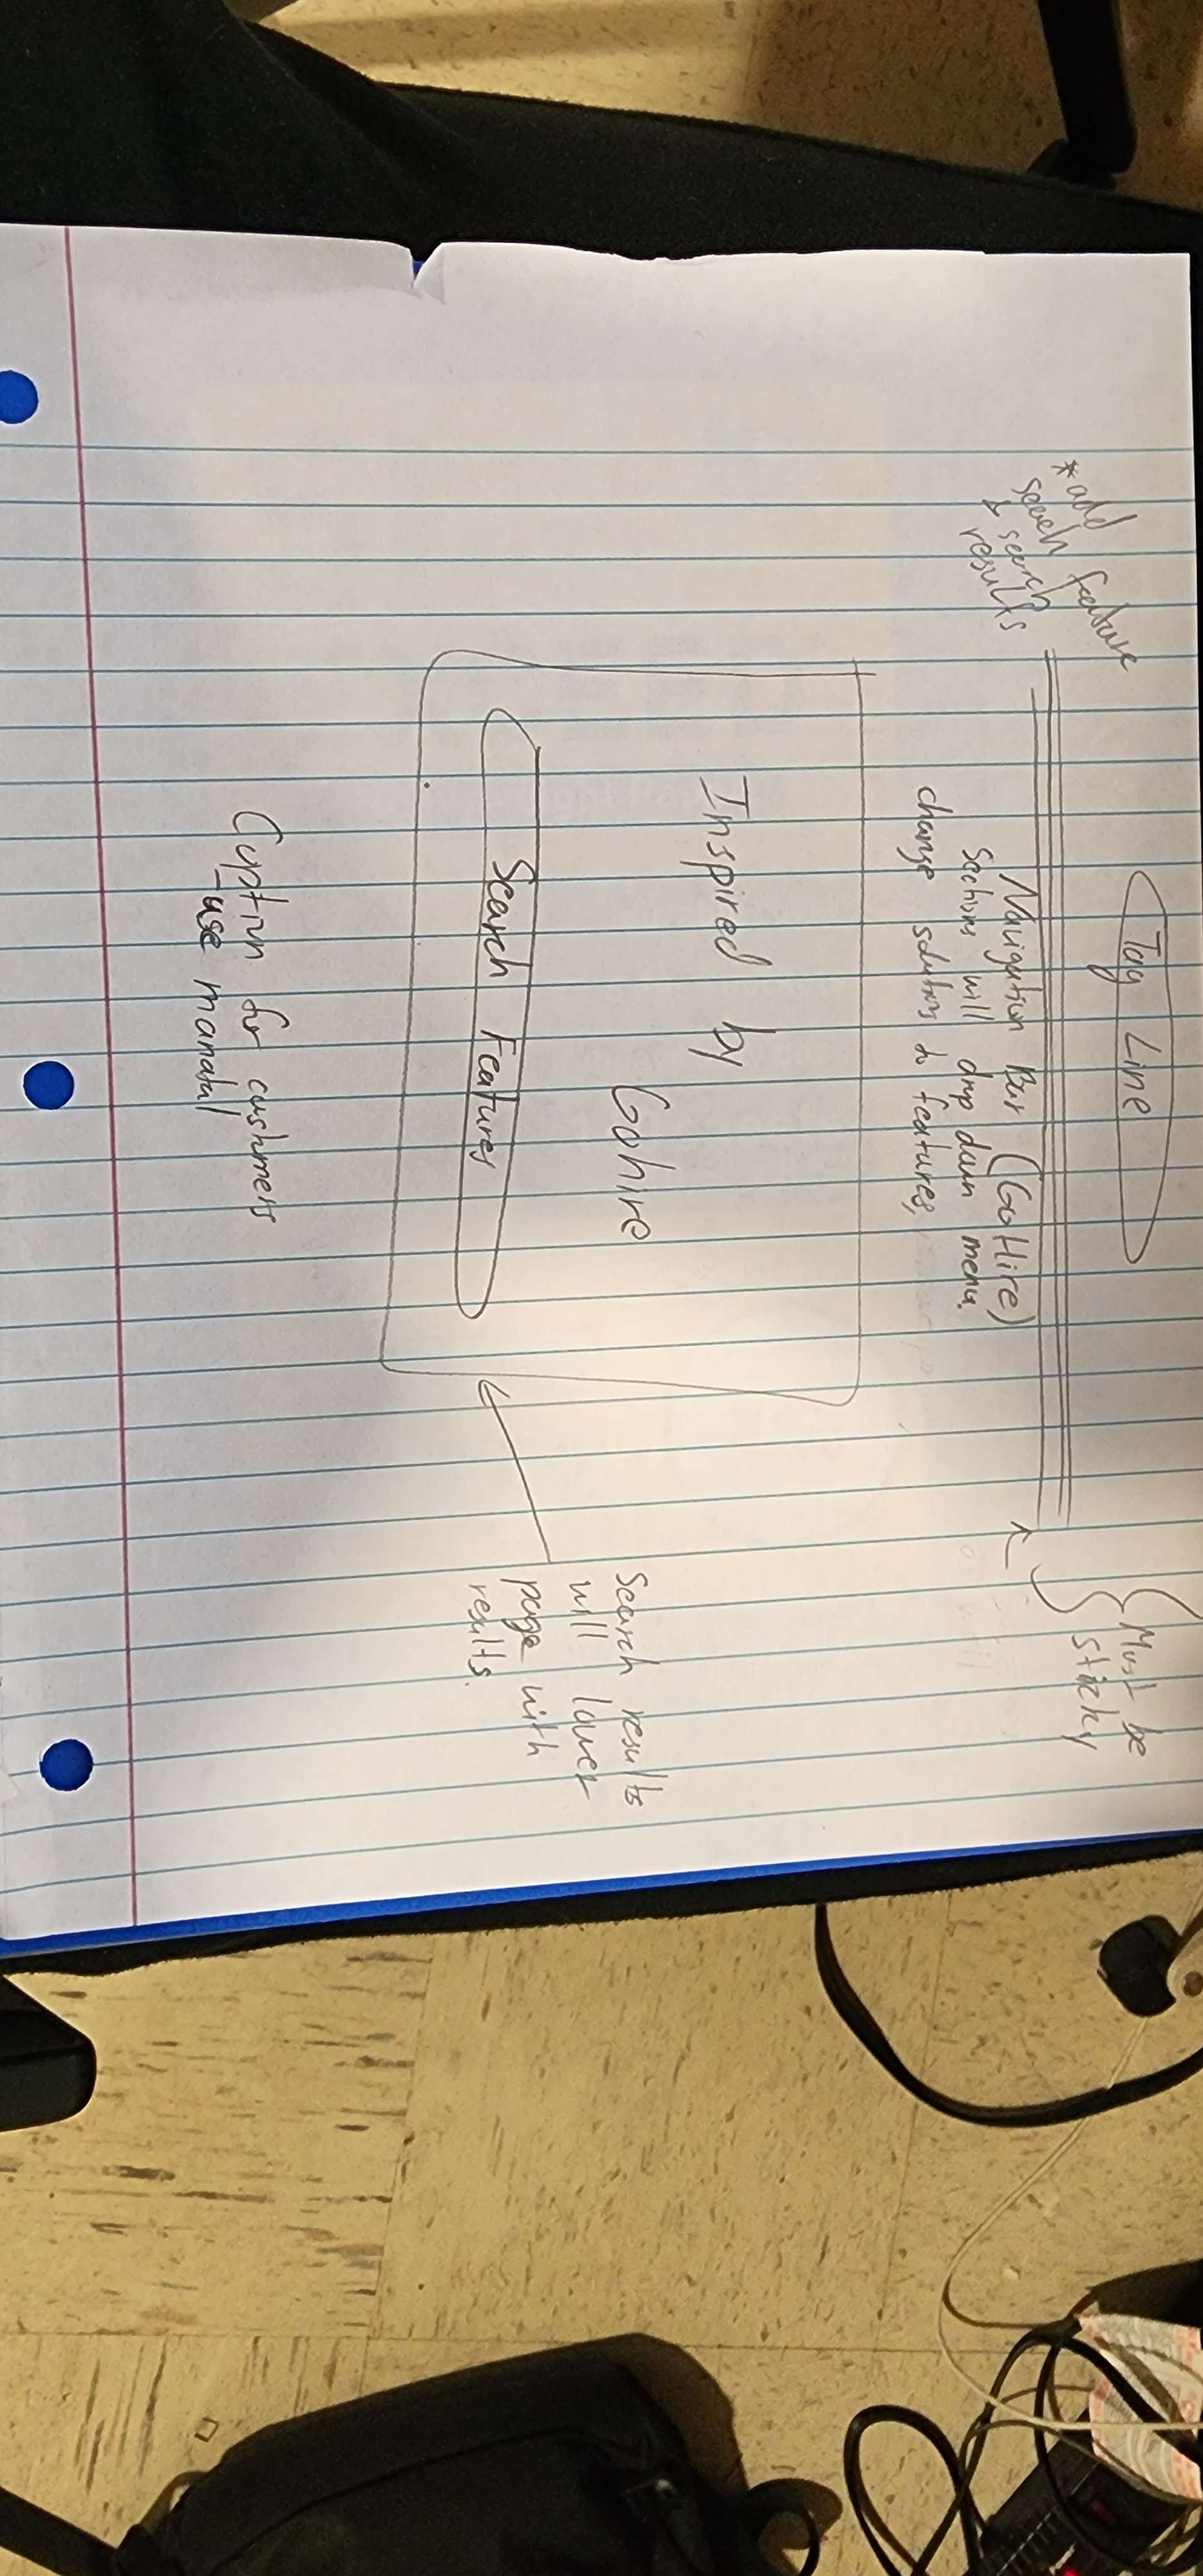 Tag Line
Must be
sticky
*add
search feature
search
results
Navigation Bar (GoHire)
Sections will drop down menu.
change solutions to features,
Inspired by
Gohire
Search Features
Search results
will lower
page with
results.
Caption for customers
-use manatal